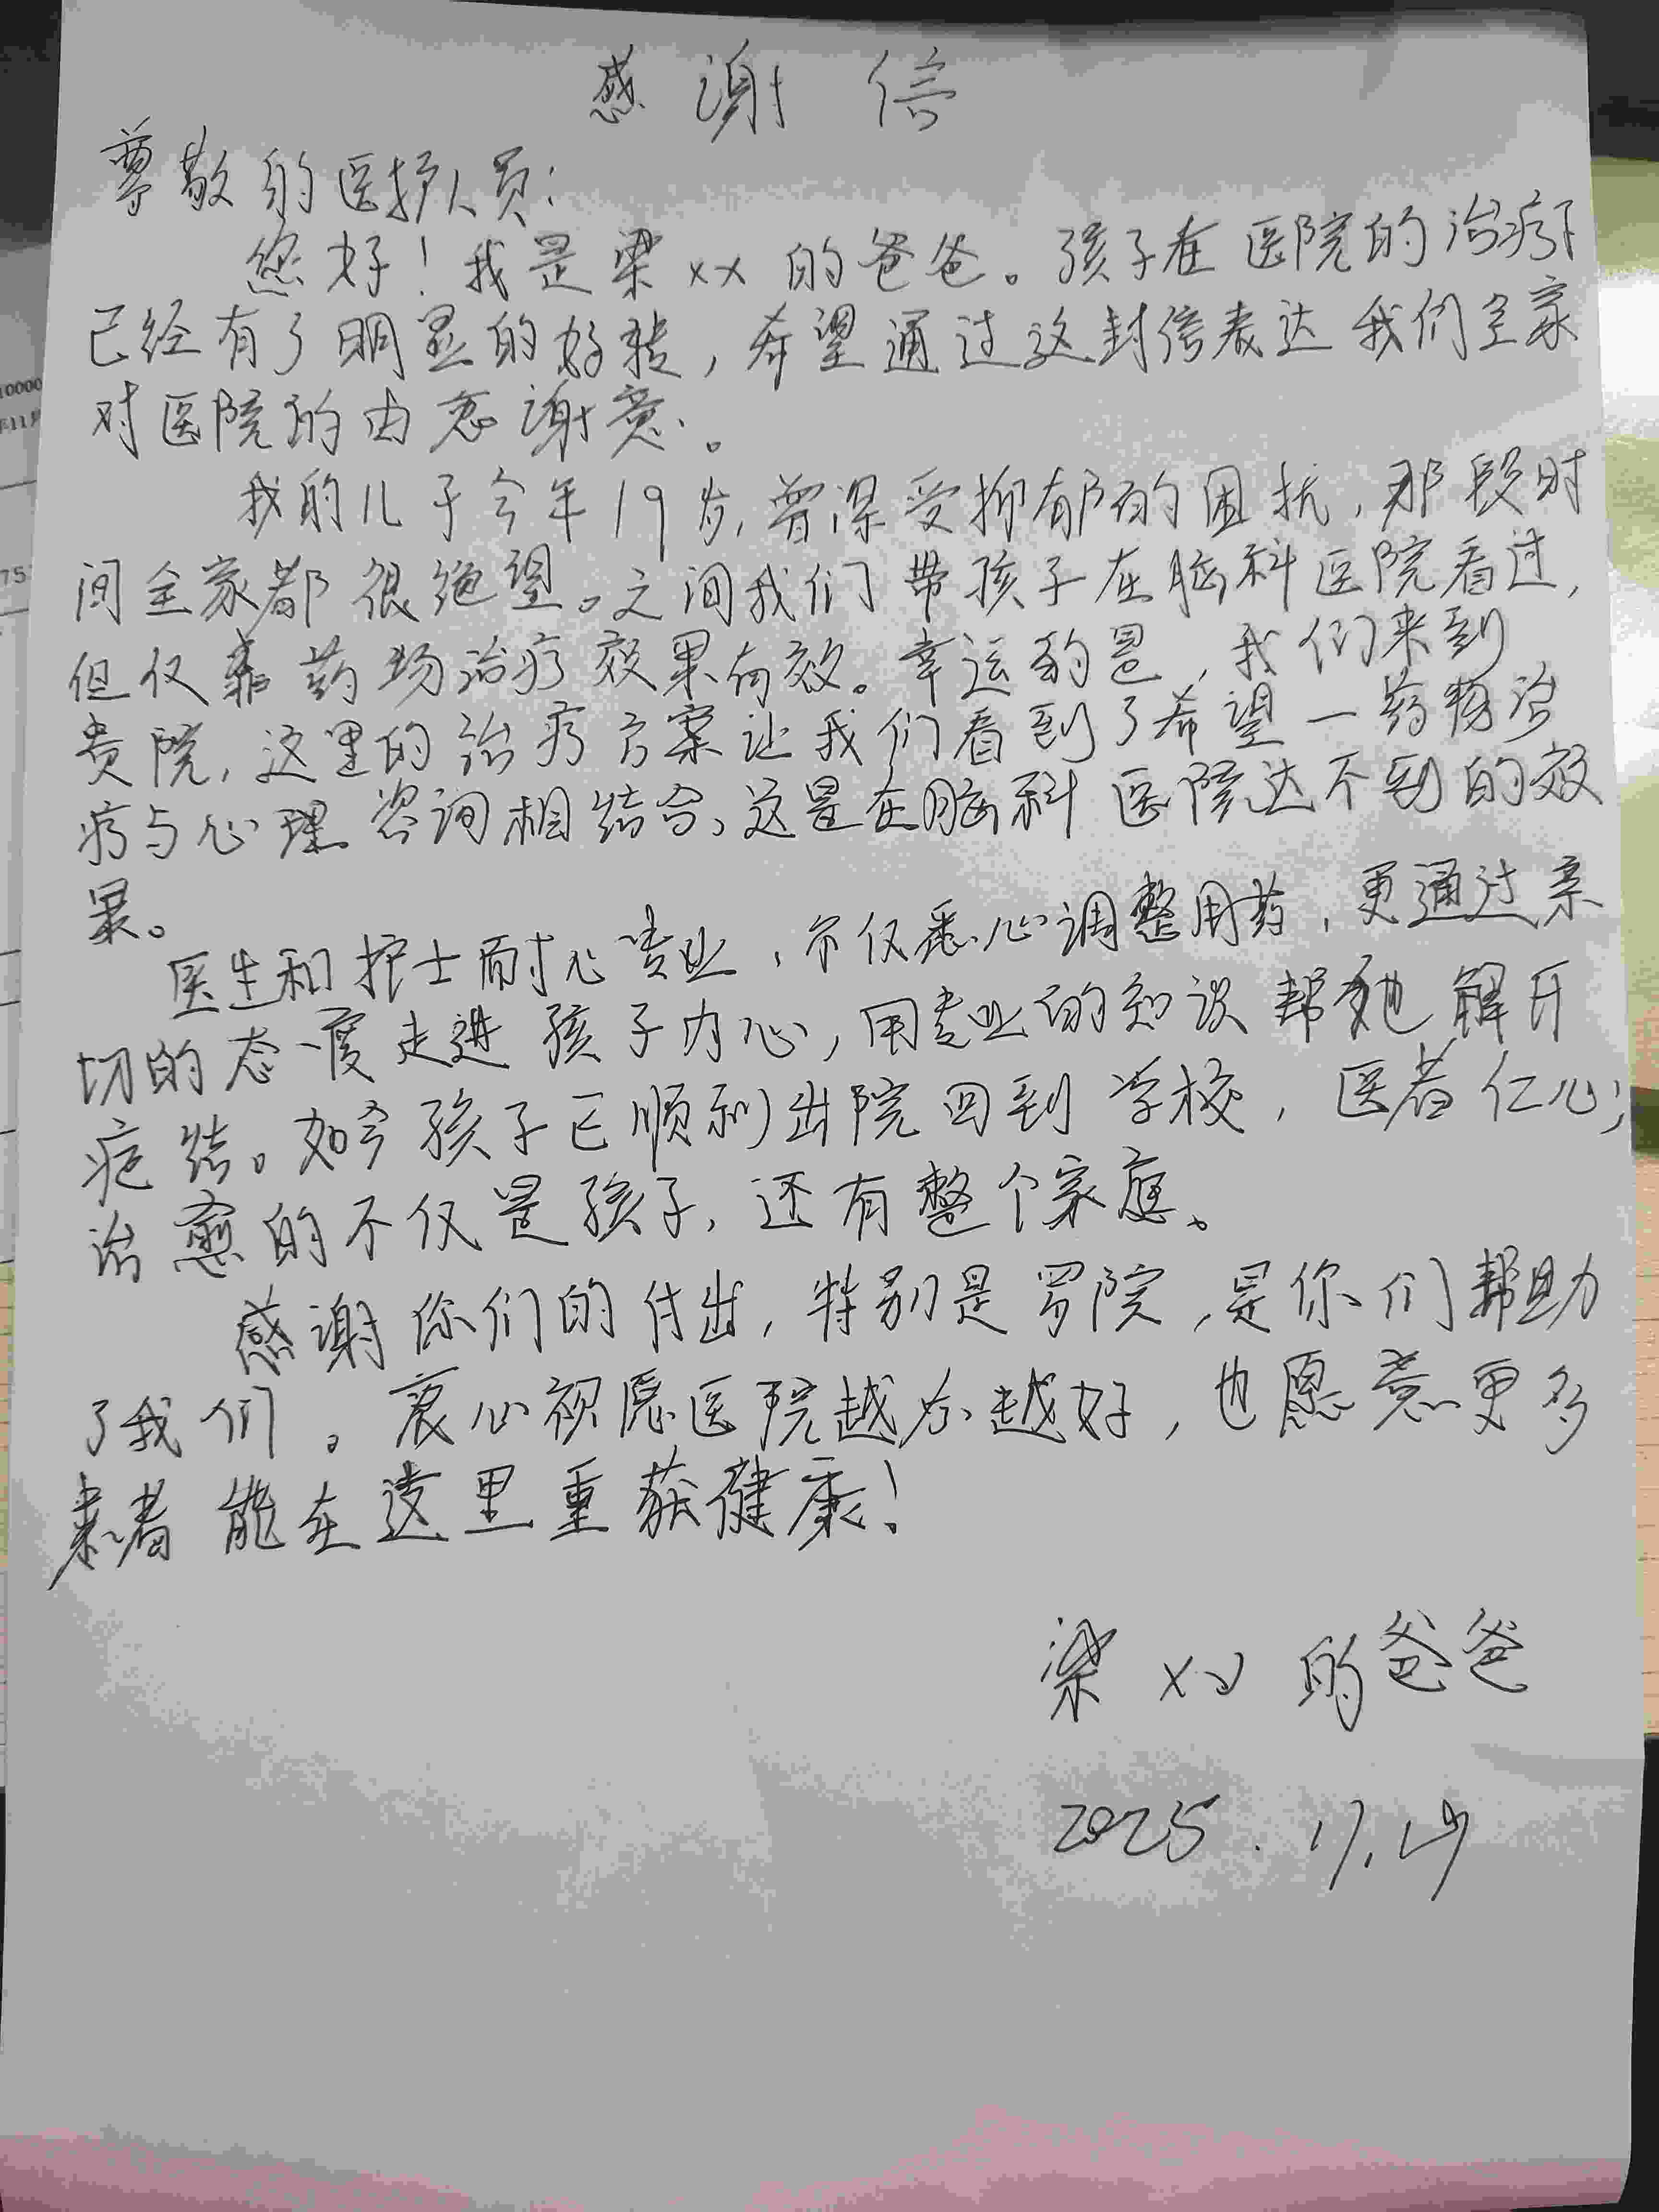 感谢信
尊敬的医护人员：
您好！我是梁xx的爸爸。孩子在医院的治疗下
已经有了明显的好转，希望通过这封信表达我们全家
对医院的由衷谢意。
我的儿子今年19岁，曾深受抑郁的困扰，那段时
间全家都很绝望。之间我们带孩子在脑科医院看过，
但仅靠药物治疗效果有效。幸运的是，我们来到
贵院，这里的治疗方案让我们看到了希望一药物治
疗与心理咨询相结合，这是在脑科医院达不到的效
果。
医生和护士耐心专业，不仅悉心调整用药，更通过亲
切的态度走进孩子内心，用专业的知识帮他解开
疙结。如今孩子已顺利出院回到学校，医者仁心；
治愈的不仅是孩子，还有整个家庭。
感谢你们的付出，特别是罗院，是你们帮助
了我们。衷心祝愿医院越办越好，也愿意更多
患者能在这里重获健康！
梁xx的爸爸
2025.11.
10000
年11月
75